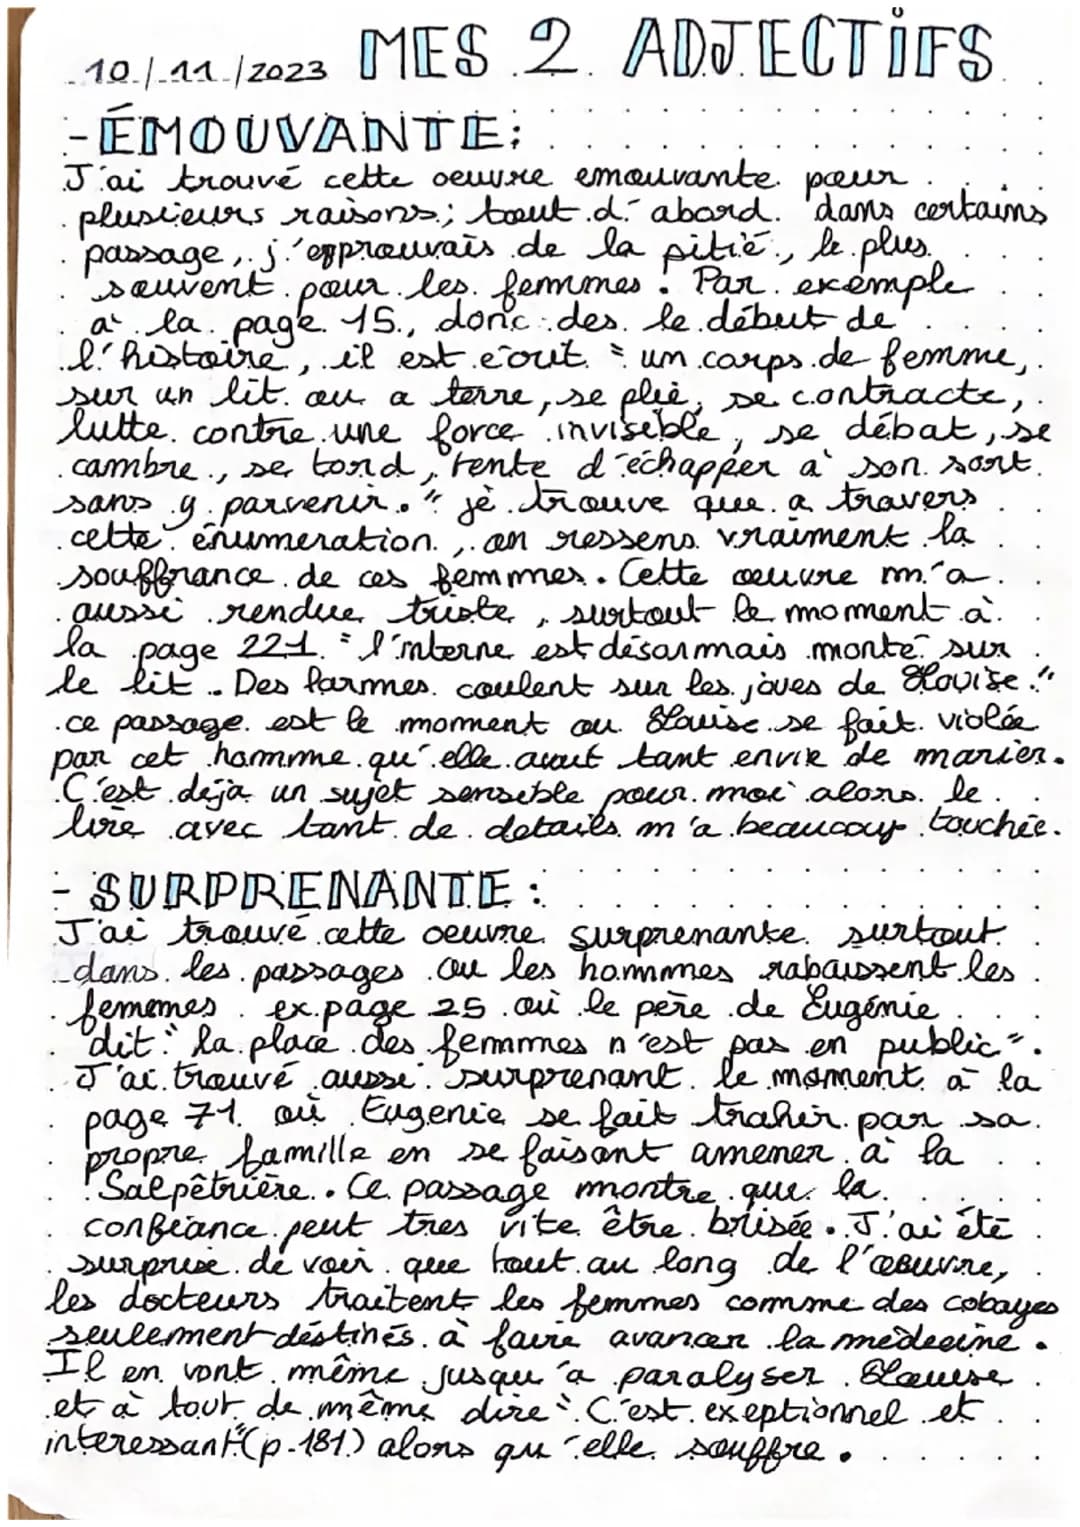 10/11/2023 MES 2 ADJECTIFS
- ÉMOUVANTE:
J'ai trouvé cette oeuvre emouvante pour
plusieurs raisons; tout d'abord dans certains
passage, j'epprouvais de la pitié, le plus
souvent pour les femmes. Par exemple
à la page 15, donc des le début de
l'histoire, il est écrit " un corps de femme,
sur un lit ou a terre, se plie, se contracte,
lutte contre une force invisible, se débat, se
cambre, se tord, tente d'échapper à son sort
sans y parvenir." je trouve que a travers
cette énumeration, on ressens vraiment la
souffrance de ces femmes. Cette œuvre m'a
aussi rendue triste, surtout le moment à
la page 221 " l'interne est désarmais monté sur
le lit. Des larmes coulent sur les joues de Louise."
ce passage est le moment ou Louise se fait violée
par cet homme qu'elle avait tant envie de marier.
C'est déja un sujet sensible pour moi alors le
lire avec tant de details m'a beaucoup touchée.
- SURPRENANTE:
J'ai trouvé cette oeuvre surprenante surtout
dans les passages ou les hommes rabaissent les
femmes. ex.page 25 où le père de Eugénie
dit " la place des femmes n'est pas en public".
J'ai trouvé aussi surprenant le moment à la
page 71 où Eugenie se fait trahir par sa
propre famille en se faisant amener à la
Salpêtrière. Ce passage montre que la
confiance peut tres vite être brisée. J'ai été
surprise de voir que tout au long de l'œuvre,
les docteurs traitent les femmes comme des cobayes
seulement déstinés à faire avancer la médecine.
Il en vont même jusqu'a paralyser Louise
et à tout de même dire " C'est exeptionnel et
interessant"(p.181) alors qu'elle souffre.